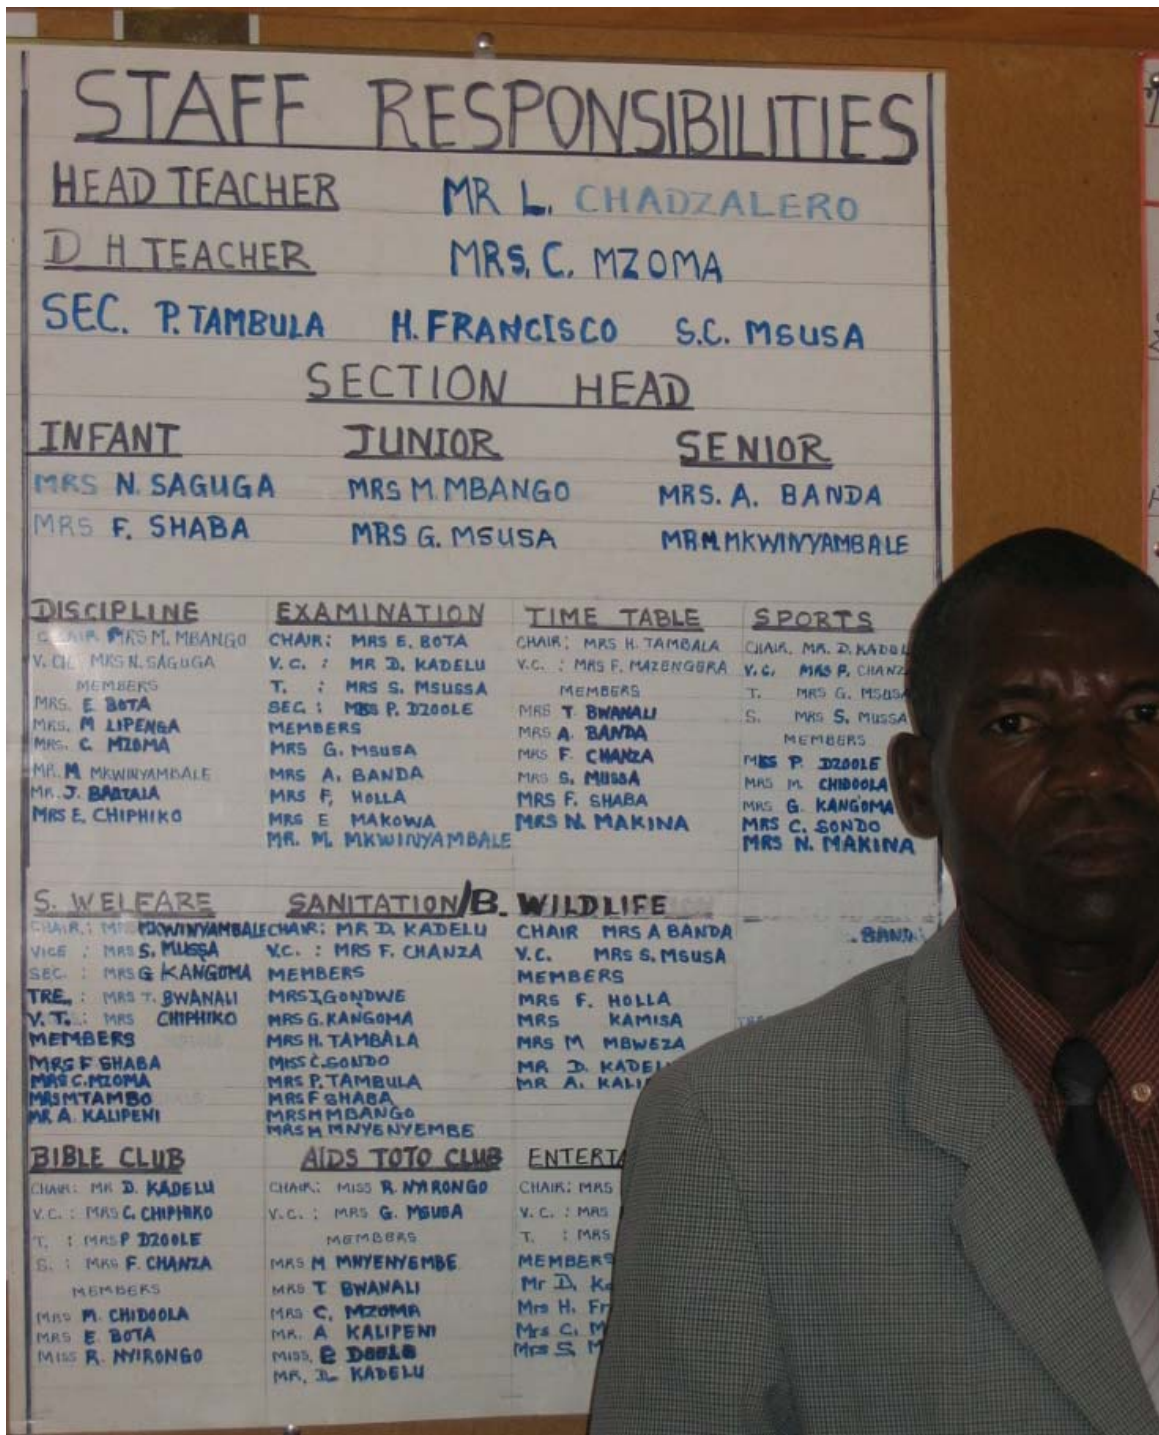 STAFF RESPONSIBILITIES
HEAD TEACHER MR L. CHADZALERO
D H TEACHER MRS. C. MZOMA
SEC. P. TAMBULA H. FRANCISCO S.C. MSUSA
SECTION HEAD
INFANT JUNIOR SENIOR
MRS N. SAGUGA MRS M. MBANGO MRS. A. BANDA
MRS F. SHABA MRS G. MSUSA MR M. MKWINYAMBALE
DISCIPLINE
CHAIR MRS M. MBANGO
V. CH. MRS N. SAGUGA
MEMBERS
MRS. E. BOTA
MRS. M LIPENGA
MRS. C. MZOMA
MR. M MKWINYAMBALE
MR. J.
MRS E. CHIPHIKO
EXAMINATION
CHAIR: MRS E. BOTA
V.C. : MR D. KADELU
T. : MRS S. MSUSSA
SEC : MISS P. DZOOLE
MEMBERS
MRS G. MSUSA
MRS A. BANDA
MRS F. HOLLA
MRS E MAKOWA
MR. M. MKWINYAMBALE
TIME TABLE
CHAIR: MRS H. TAMBALA
V.C. : MRS F. MAZENGERA
MEMBERS
MRS T. BWANALI
MRS A. BANDA
MRS F. CHANZA
MRS S. MUSSA
MRS F. SHABA
MRS N. MAKINA
SPORTS
CHAIR. MR. D. KADEL
V.C. MRS F. CHANZ
T. MRS G. MSUSA
S. MRS S. MUSSA
MEMBERS
MISS P. DZOOLE
MRS M. CHIDOOLA
MRS G. KANGOMA
MRS C. SONDO
MRS N. MAKINA
S. WELFARE
CHAIR.: MKWINYAMBALE
VICE : MRS S. MUSSA
SEC. : MRS G KANGOMA
TRE. : MRS T. BWANALI
V.T. : MRS CHIPHIKO
MEMBERS
MRS F SHABA
MRS C. MZOMA
MRS M TAMBO
MR A. KALIPENI
SANITATION/B.
CHAIR: MR D. KADELU
V.C. : MRS F. CHANZA
MEMBERS
MRS I. GONDWE
MRS G. KANGOMA
MRS H. TAMBALA
MISS C. SONDO
MRS P. TAMBULA
MRS F SHABA
MRS M MBANGO
MRS M MNYENYEMBE
WILDLIFE
CHAIR MRS A BANDA
V.C. MRS S. MSUSA
MEMBERS
MRS F. HOLLA
MRS KAMISA
MRS M MBWEZA
MR D. KADEL
MR A. KALI
BAND
BIBLE CLUB
CHAIR: MR D. KADELU
V.C. : MRS C. CHIPHIKO
T. : MRS P DZOOLE
S. : MRS F. CHANZA
MEMBERS
MRS M. CHIDOOLA
MRS E. BOTA
MISS R. NYIRONGO
AIDS TOTO CLUB
CHAIR: MISS R. NYIRONGO
V.C. : MRS G. MSUSA
MEMBERS
MRS M MNYENYEMBE
MRS T BWANALI
MRS C. MZOMA
MR. A KALIPENI
MISS. P
MR. D. KADELU
ENTERTA
CHAIR: MRS
V.C. : MRS
T. : MRS
MEMBERS
Mr D. Ka
Mrs H. Fr
Mrs C. M
Mrs S. M